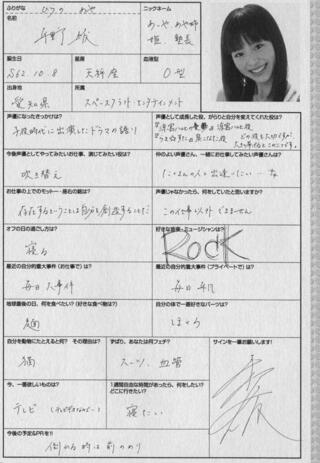 ふりがな
ひらの あや
ニックネーム
名前
平野 綾
あーや あや姉
姫 塾長
誕生日
S62.10.8
星座
天秤座
血液型
O型
出身地
愛知県
所属
スペースクラフト・エンタテインメント
声優になったきっかけは?
子役時代に出演したドラマの語り
声優として成長した役、がらりと自分を変えてくれた役は?
今後声優としてやってみたいお仕事、演じてみたい役は?
吹き替え
仲のよい声優さん、一緒にお仕事してみたい声優さんは?
たくさんの人と出逢いたい…な
お仕事の上でのモットー・座右の銘は?
存在するということは自分を創造することだ
声優じゃなかったら、何をしていたと思いますか?
この仕事以外できません
オフの日の過ごし方は?
寝る
好きな音楽・ミュージシャンは?
RocK
最近の自分的重大事件(お仕事で)は?
毎日大事件
最近の自分的重大事件(プライベートで)は?
毎日
地球最後の日、何を食べたい?(好きな食べ物は?)
麺
自分の体で一番好きなパーツは?
自分を動物にたとえると何? その理由は?
猫
ずばり、あなたは何フェチ?
スーツ、血管
サインを一筆お願いします!
今、一番欲しいものは?
テレビ
1週間自由な時間があったら、何をしたい?
どこに行きたい?
寝たい
今後の予定&PRを!!
倒れる時は前のめり